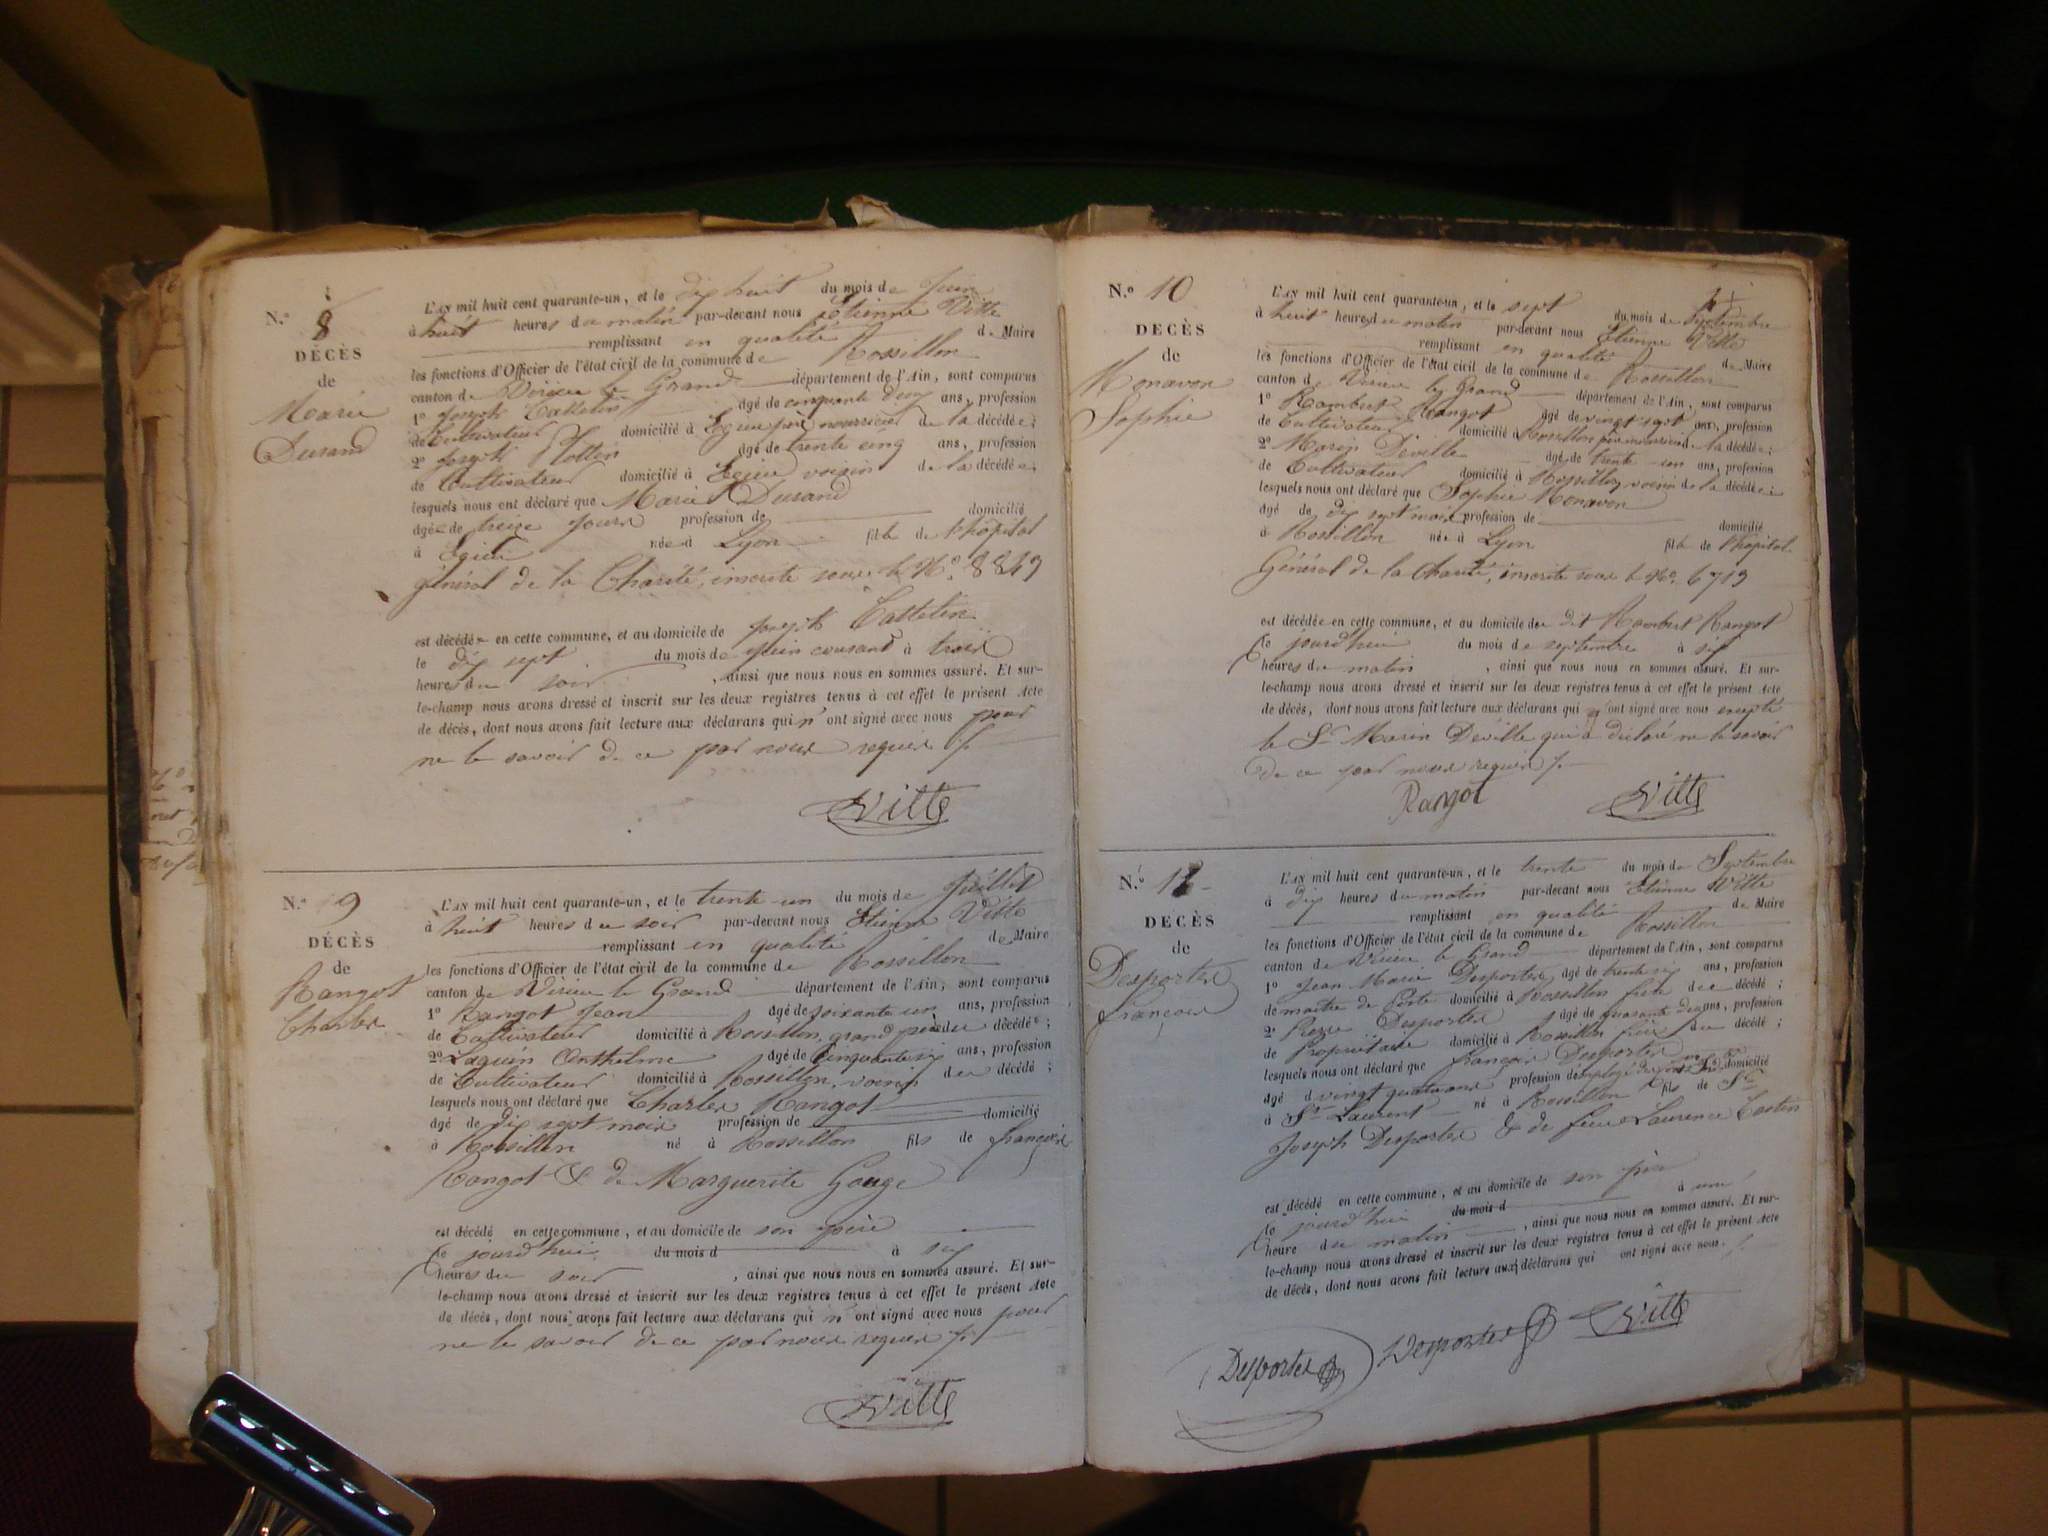 N.° 8
DÉCÈS
de
Marie
Durand
L'AN mil huit cent quarante-un, et le dix huit du mois de Juin
à huit heures du matin par-devant nous Etienne Vitte
remplissant en qualité de Maire
les fonctions d'Officier de l'état civil de la commune de Rossillon
canton de Virieu le Grand département de l'Ain, sont comparus
1° Joseph Cattelin âgé de cinquante deux ans, profession
de Cultivateur domicilié à Egieu père nourricier de la décédée;
2° Joseph âgé de trente cinq ans, profession
de Cultivateur domicilié à Egieu voisin de la décédée;
lesquels nous ont déclaré que Marie Durand
âgée de treize jours profession de domicilié
à Egieu née à Lyon fille de l'hôpital
général de la Charité, inscrite sous le N.° 8849
est décédée en cette commune, et au domicile de Joseph Cattelin
le dix sept du mois de Juin courant à trois
heures du soir , ainsi que nous nous en sommes assuré. Et sur-
le-champ nous avons dressé et inscrit sur les deux registres tenus à cet effet le présent Acte
de décès, dont nous avons fait lecture aux déclarans qui n'ont signé avec nous pour
ne le savoir de ce par nous requis ./.
Vitte
N.° 9
DÉCÈS
de
Rangot
Charles
L'AN mil huit cent quarante-un, et le trente-un du mois de Juillet
à huit heures du soir par-devant nous Etienne Vitte
remplissant en qualité de Maire
les fonctions d'Officier de l'état civil de la commune de Rossillon
canton de Virieu le Grand département de l'Ain, sont comparus
1° Rangot Jean âgé de soixante un ans, profession
de Cultivateur domicilié à Rossillon, grand père du décédé;
2° Laguin Anthelme âgé de cinquante six ans, profession
de Cultivateur domicilié à Rossillon, voisin du décédé;
lesquels nous ont déclaré que Charles Rangot
âgé de dix sept mois profession de domicilié
à Rossillon né à Rossillon fils de françois
Rangot & de Marguerite Gouge
est décédé en cette commune, et au domicile de son père
le jourd'hui du mois d à six
heures du soir , ainsi que nous nous en sommes assuré. Et sur-
le-champ nous avons dressé et inscrit sur les deux registres tenus à cet effet le présent Acte
de décès, dont nous avons fait lecture aux déclarans qui n'ont signé avec nous pour
ne le savoir de ce par nous requis ./.
Vitte
N.° 10
DECÈS
de
Monavon
Sophie
L'AN mil huit cent quarante-un, et le sept du mois de Septembre
à huit heures du matin par-devant nous Etienne Vitte
remplissant en qualité de Maire
les fonctions d'Officier de l'état civil de la commune de Rossillon
canton de Virieu le Grand département de l'Ain, sont comparus
1° Rambert Rangot âgé de vingt sept ans, profession
de Cultivateur domicilié à Rossillon père nourricier de la décédée;
2° Marin Deville âgé de trente-un ans, profession
de Cultivateur domicilié à Rossillon, voisin de la décédée;
lesquels nous ont déclaré que Sophie Monavon
âgé de dix sept mois profession de domicilié
à Rossillon née à Lyon fille de l'hôpital
Général de la Charité, inscrite sous le N°. 6719
est décédée en cette commune, et au domicile de dit Rambert Rangot
le jourd'hui du mois de septembre à six
heures du matin , ainsi que nous nous en sommes assuré. Et sur-
le-champ nous avons dressé et inscrit sur les deux registres tenus à cet effet le présent Acte
de décès, dont nous avons fait lecture aux déclarans qui ont signé avec nous excepté
le Sr Marin Déville qui a déclaré ne le savoir
de ce par nous requis ./.
Rangot Vitte
N.° 11
DECÈS
de
Desportes
françois
L'AN mil huit cent quarante-un, et le trente du mois de Septembre
à dix heures du matin par-devant nous Etienne Vitte
remplissant en qualité de Maire
les fonctions d'Officier de l'état civil de la commune de Rossillon
canton de Virieu le Grand département de l'Ain, sont comparus
1° Jean Marie Desportes âgé de trente six ans, profession
de maître de Poste domicilié à Rossillon frère du décédé;
2° Desportes âgé de quarante deux ans, profession
de Propriétaire domicilié à Rossillon frère du décédé;
lesquels nous ont déclaré que françois Desportes
âgé de vingt quatre ans profession d'employé domicilié
à St Laurent né à Rossillon fils de Sr
Joseph Desportes & de feue Laurence Costin
est décédé en cette commune, et au domicile de son père
le jourd'hui du mois d à une
heure du matin , ainsi que nous nous en sommes assuré. Et sur-
le-champ nous avons dressé et inscrit sur les deux registres tenus à cet effet le présent Acte
de décès, dont nous avons fait lecture aux déclarans qui ont signé avec nous. ./.
Desportes Desportes Vitte